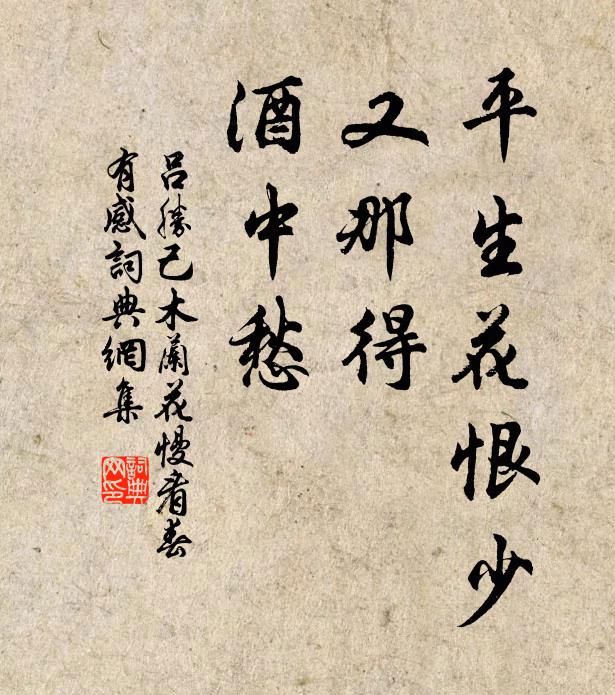 平生花恨少
又那得
酒中愁
呂勝己木蘭花慢看春
有感詞典網集
詞典
网印